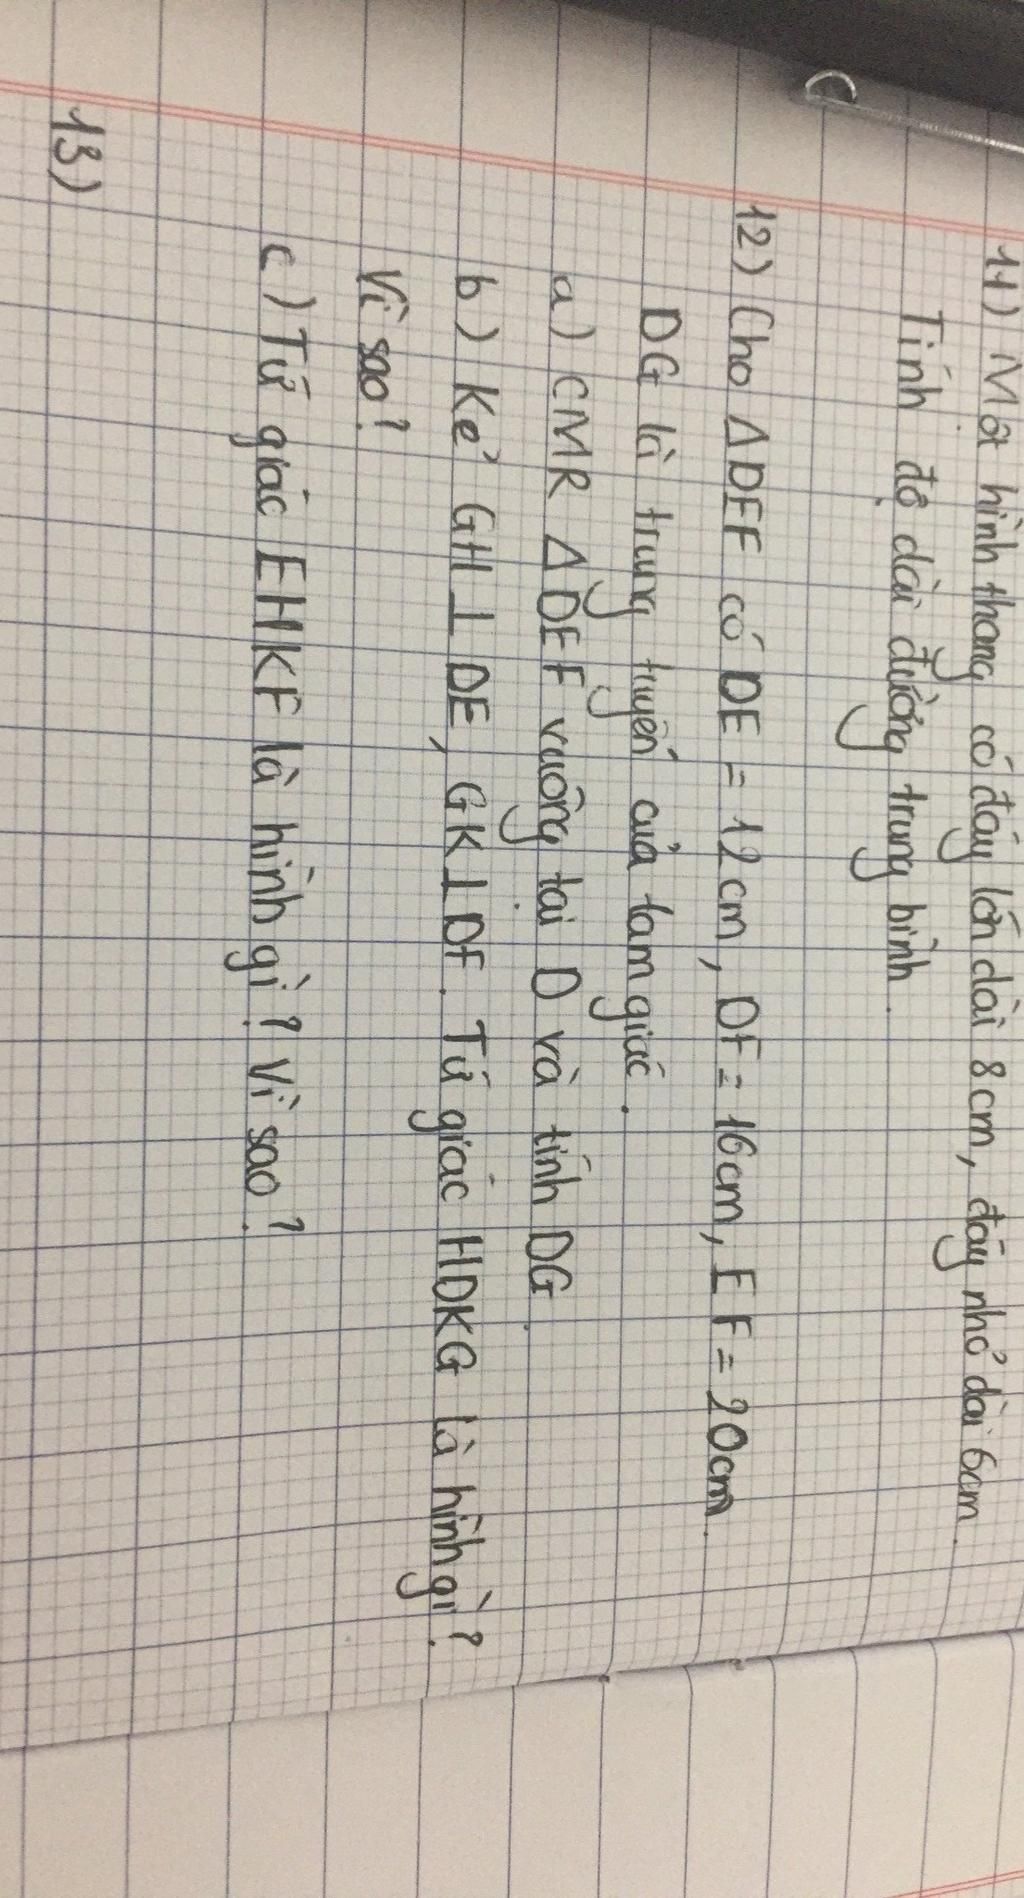 11) Một hình thang có đáy lớn dài 8cm, đáy nhỏ dài 6cm.
Tính độ dài đường trung bình.
12) Cho ΔDEF có DE = 12cm, DF = 16cm, EF = 20cm.
DG là trung tuyến của tam giác.
a) CMR ΔDEF vuông tại D và tính DG.
b) Kẻ GH ⊥ DE, GK ⊥ DF. Tứ giác HDKG là hình gì?
Vì sao?
c) Tứ giác EHKF là hình gì? Vì sao?
13)